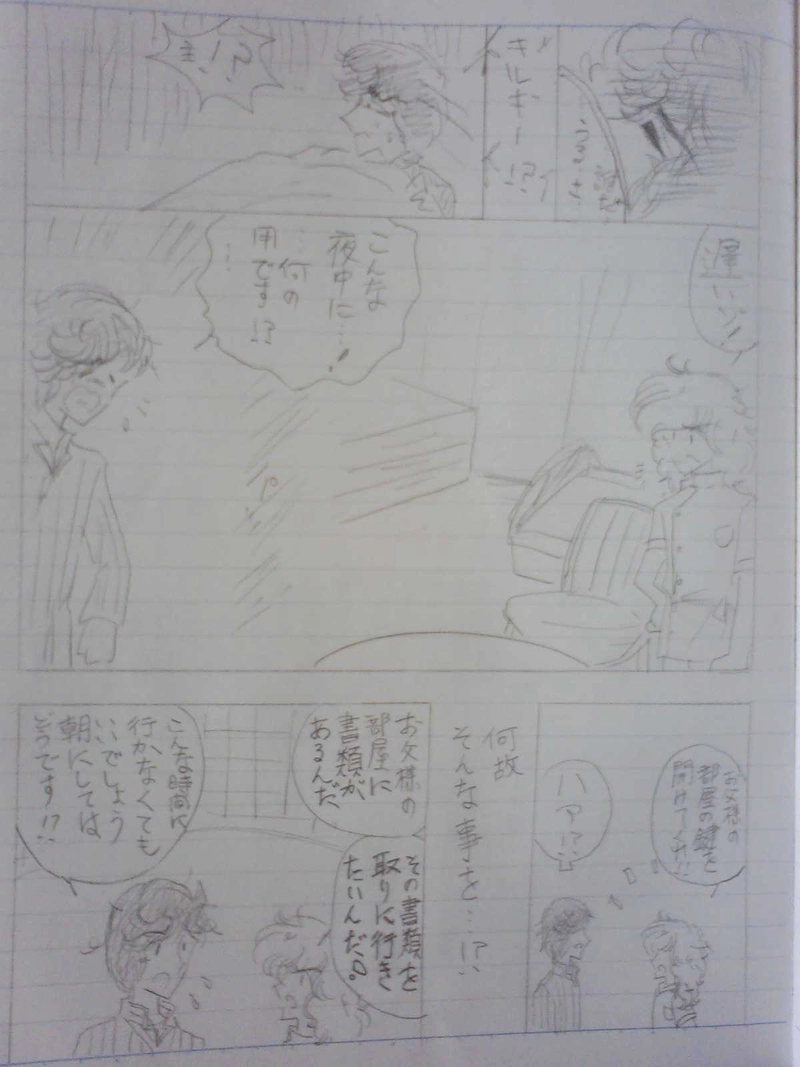 ギルギー!?
!?
遅いぞ!
こんな
夜中に…!
…何の
用です!?
…
お父様の
部屋の鍵を
開けてくれ
ハァ!?
何故
そんな事を…!?
お父様の
部屋に
書類が
あるんだ
その書類を
取りに行き
たいんだ。
こんな時間に
行かなくても
いいでしょう
朝にしては
どうです!?